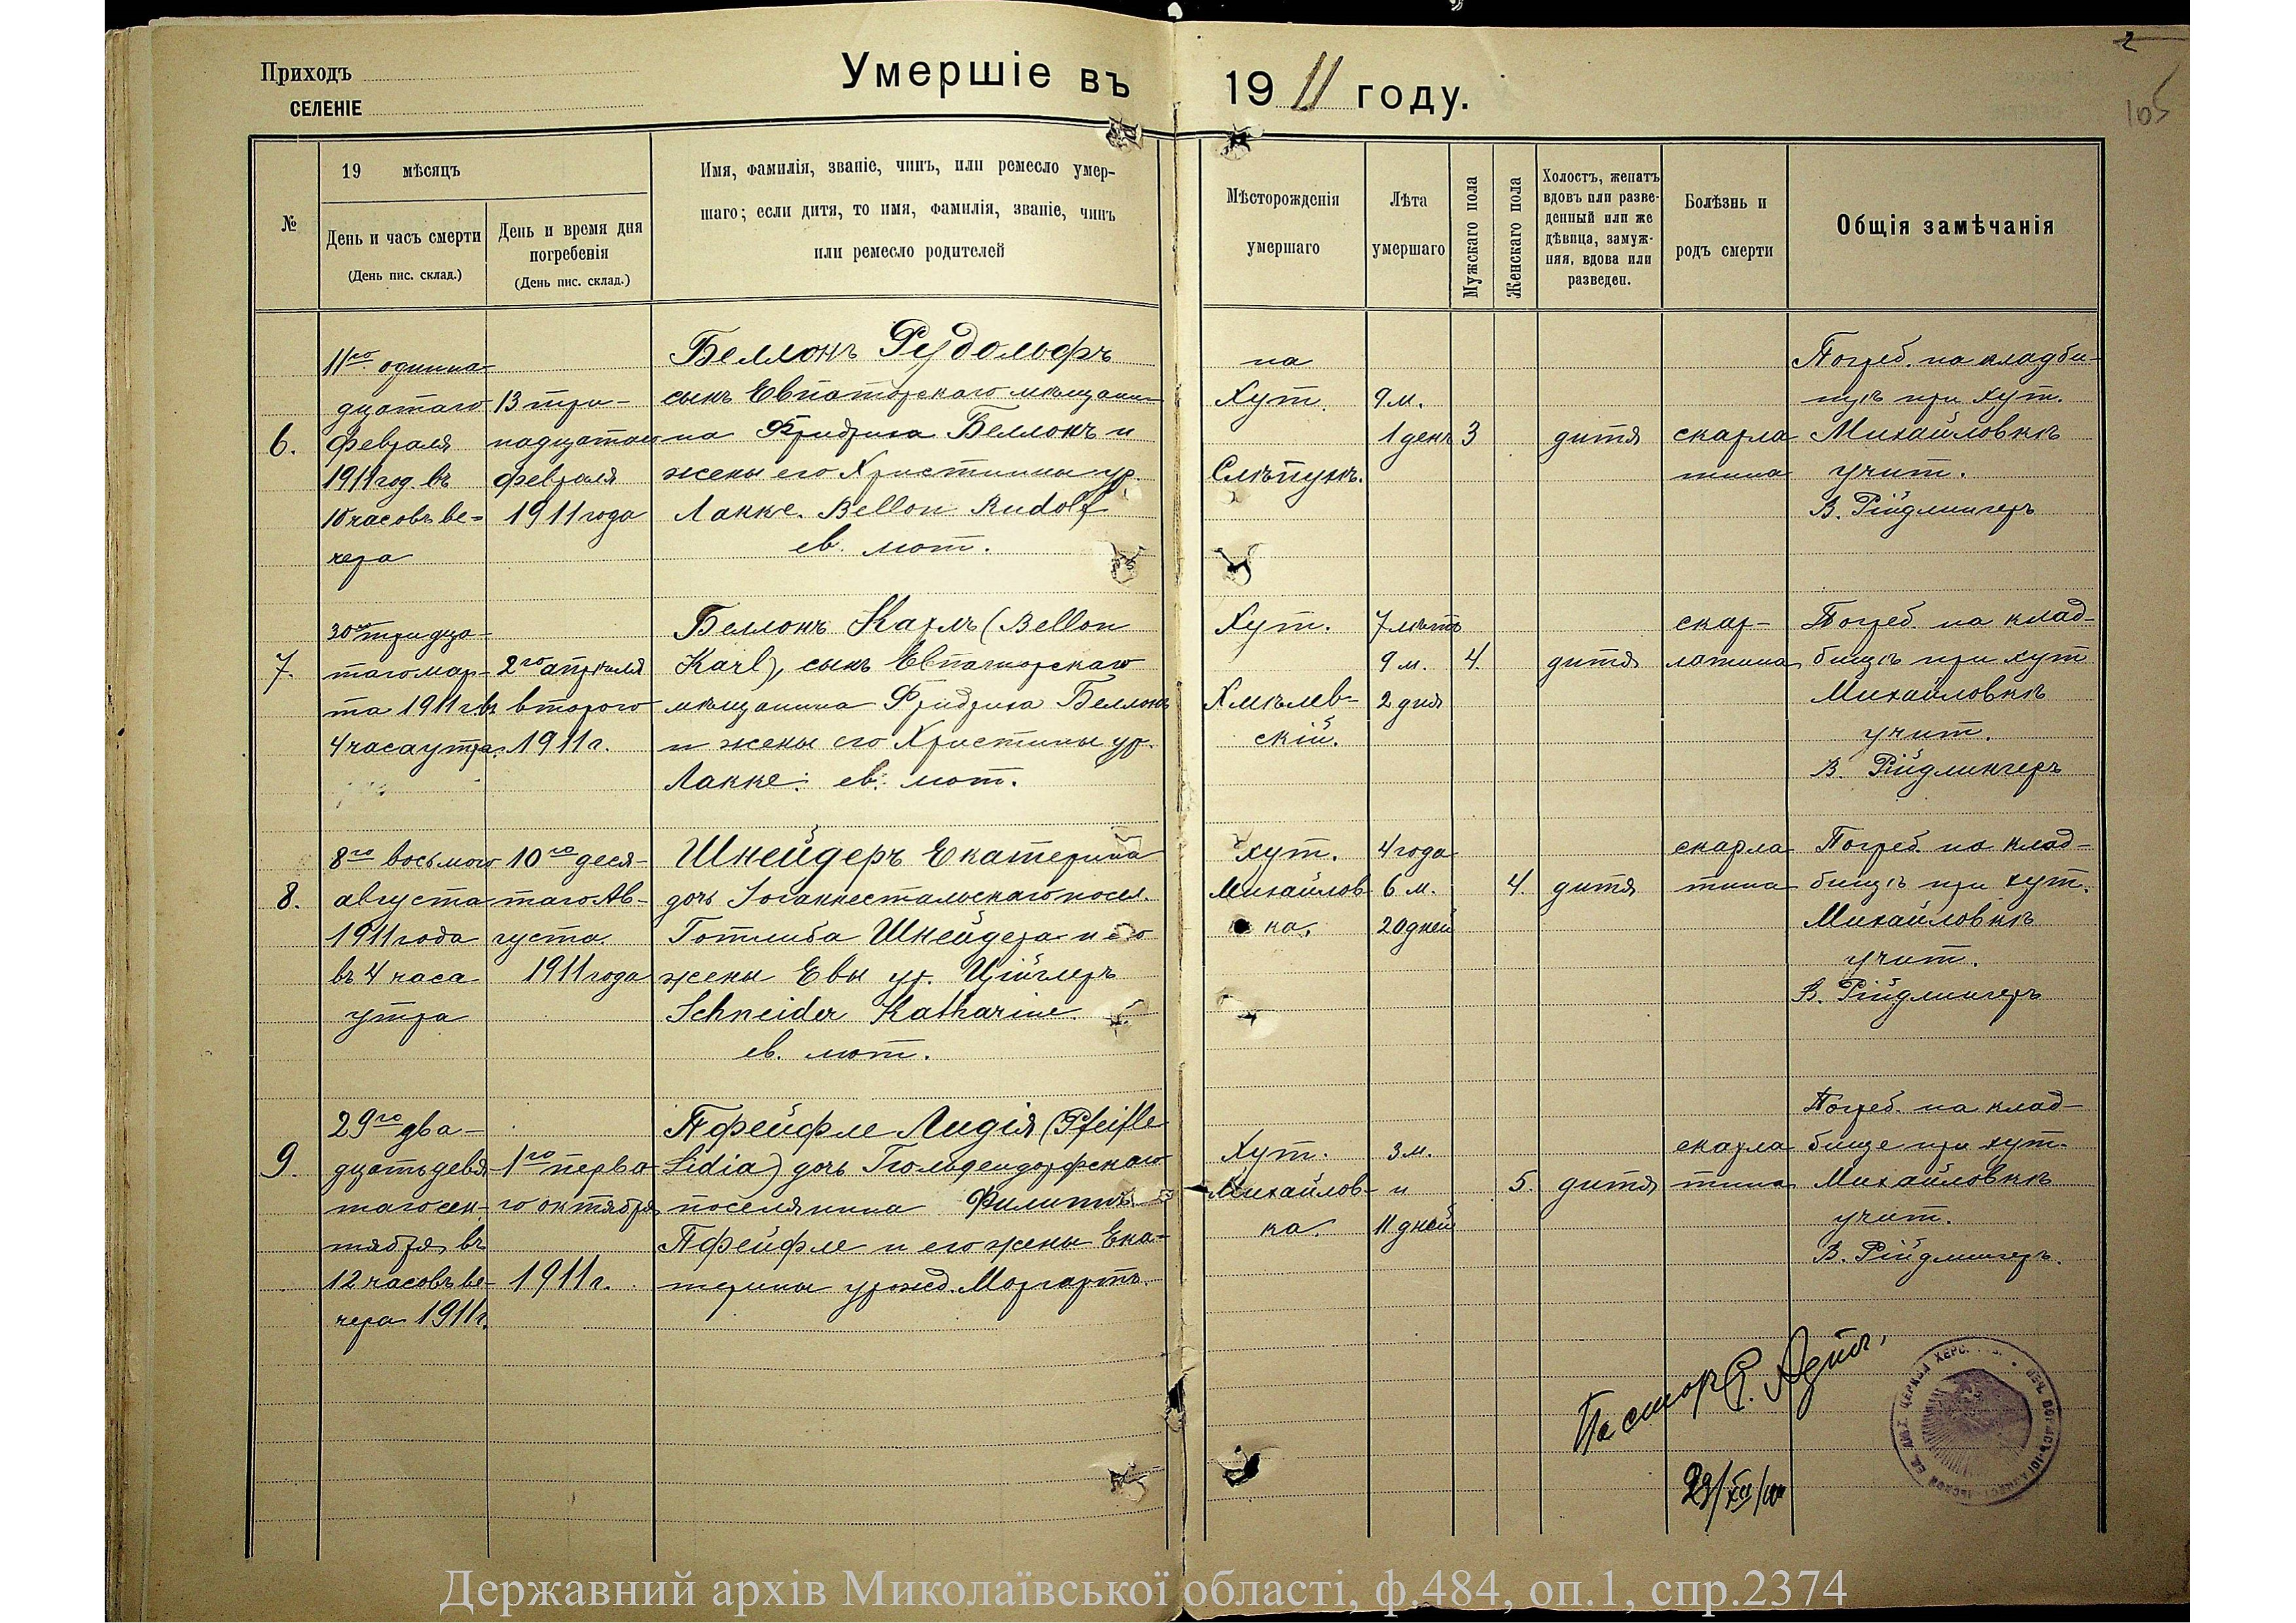 2
105
Приходъ
СЕЛЕНІЕ
Умершіе въ 1911 году.
№
19 мѣсяцъ
День и часъ смерти
(День пис. склад.)
День и время дня
погребенія
(День пис. склад.)
Имя, фамилія, званіе, чинъ, или ремесло умер-
шаго; если дитя, то имя, фамилія, званіе, чинъ
или ремесло родителей
Мѣсторожденія
умершаго
Лѣта
умершаго
Мужскаго пола
Женскаго пола
Холостъ, женатъ
вдовъ или разве-
денный или же
дѣвица, замуж-
няя, вдова или
разведен.
Болѣзнь и
родъ смерти
Общія замѣчанія
6.
11го одинна-
дцатаго
февраля
1911 год. въ
10 часовъ ве-
чера
13 три-
надцатаго
февраля
1911 года
Беллонъ Рудольфъ
сынъ Евпаторскаго мѣщани-
на Фридриха Беллонъ и
жены его Христины ур.
Лакке. Bellon Rudolf
ев. лют.
на
Хут.
Слѣпухъ.
9 м.
1 день
3
дитя
скарла
тина
Погреб. на кладби-
щѣ при хут.
Михайловкѣ
учит.
В. Рійдлингеръ
7.
30го тридца-
таго мар-
та 1911 г. въ
4 часа утра.
2го апрѣля
второго
1911 г.
Беллонъ Карлъ (Bellon
Karl), сынъ Евпаторскаго
мѣщанина Фридриха Беллонъ
и жены его Христины ур.
Лакке. ев. лют.
Хут.
Хмѣлев-
скій.
7 лѣтъ
9 м.
2 дня
4.
дитя
скар-
латина
Погреб. на клад-
бищѣ при хут
Михайловкѣ
учит.
В. Рійдлингеръ
8.
8го восьмого
августа
1911 года
въ 4 часа
утра
10го деся-
таго Ав-
густа
1911 года
Шнейдеръ Екатерина
дочь Іоганнестальскаго посел.
Готлиба Шнейдера и его
жены Евы ур. Ційглеръ
Schneider Katharine
ев. лют.
хут.
Михайлов-
ка.
4 года
6 м.
20 дней
4.
дитя
скарла
тина
Погреб. на клад-
бищѣ при хут.
Михайловкѣ
учит.
В. Рійдлингеръ
9.
29го два-
дцать девя
таго сен-
тября въ
12 часовъ ве-
чера 1911 г.
1го перва-
го октября
1911 г.
Пфейфле Лидія (Pfeifle
Lidia) дочь Гюльдендорфскаго
поселянина Филиппъ
Пфейфле и его жены Ека-
терины урожд. Моргартъ.
Хут.
Михайлов-
ка.
3 м.
и
11 дней
5.
дитя
скарла
тина
Погреб. на клад-
бище при хут.
Михайловкѣ
учит.
В. Рійдлингеръ.
Пасторъ
29/XII/1911
Державний архів Миколаївської області, ф.484, оп.1, спр.2374